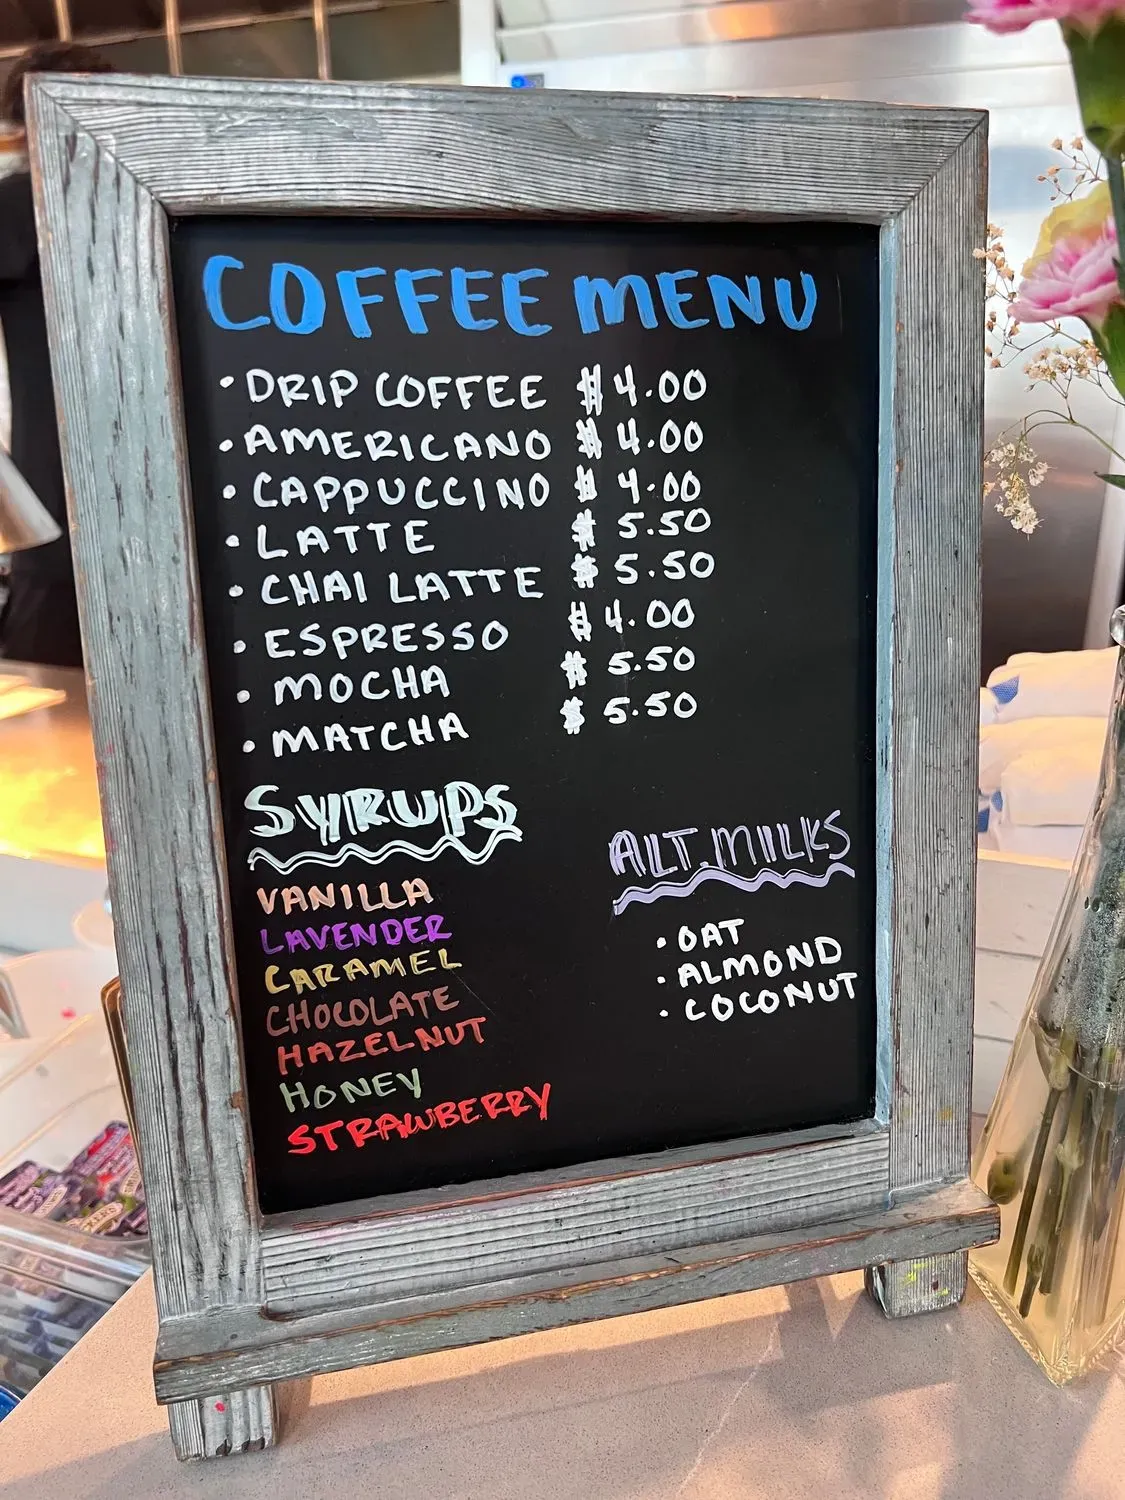 COFFEE MENU
• DRIP COFFEE $4.00
• AMERICANO $4.00
• CAPPUCCINO $4.00
• LATTE $5.50
• CHAI LATTE $5.50
• ESPRESSO $4.00
• MOCHA $5.50
• MATCHA $5.50
SYRUPS
VANILLA
LAVENDER
CARAMEL
CHOCOLATE
HAZELNUT
HONEY
STRAWBERRY
ALT. MILKS
• OAT
• ALMOND
• COCONUT